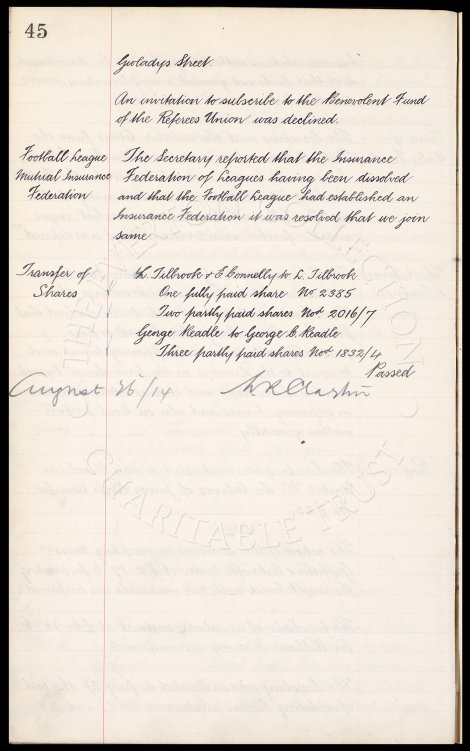 45
Gwladys Street.
An invitation to subscribe to the Benevolent Fund
of the Referees Union was declined.
Football League The Secretary reported that the Insurance
Mutual Insurance Federation of Leagues having been dissolved
Federation and that the Football League had established an
Insurance Federation it was resolved that we join
same
Transfer of L. Tilbrook & E Connelly to L. Tilbrook
Shares One fully paid share No 2385
Two partly paid shares Nos 2016/7
George Keadle to George C. Keadle
Three partly paid shares Nos 1832/4
Passed
August 26/14
CHARITABLE TRUST